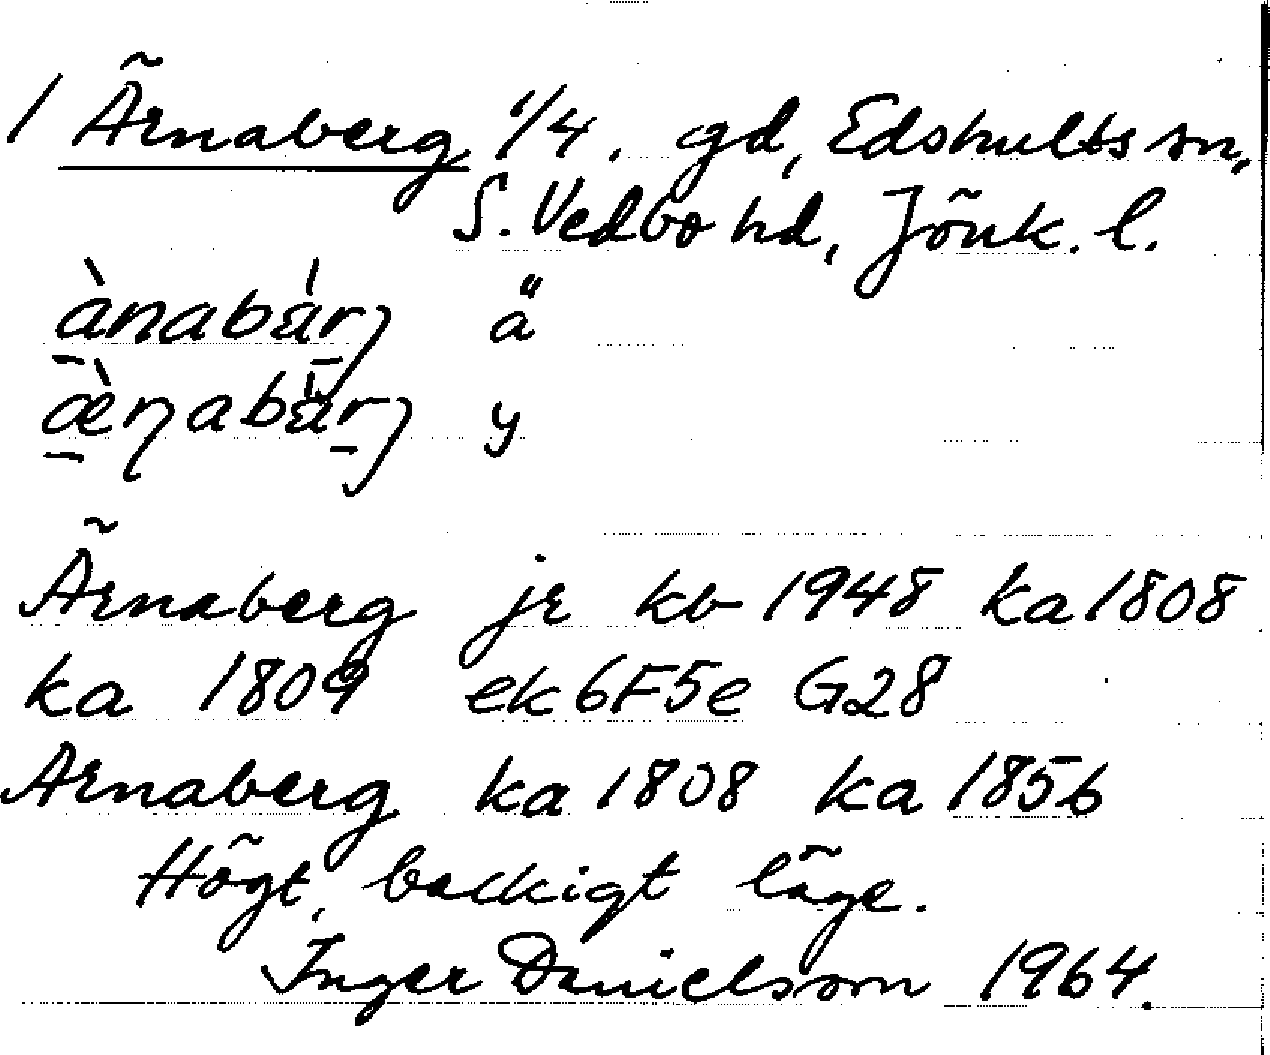 1 Ärnaberg 1/4, gd, Edshults sn,
S. Vedbo hd, Jönk. l.
ànabár̠ ä
æ̀ɳabàr̠ y
Ärnaberg jr kb 1948 ka 1808
ka 1809 ek 6F5e G28
Arnaberg ka 1808 ka 1856
Högt, backigt läge.
Inger Danielsson 1964.